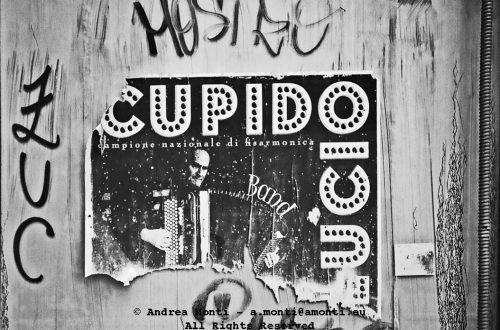 CUPIDO
campione nazionale di fisarmonica
Band
UCIO
ZUC
© Andrea Monti - a.monti@amonti.eu
All Rights Reserved